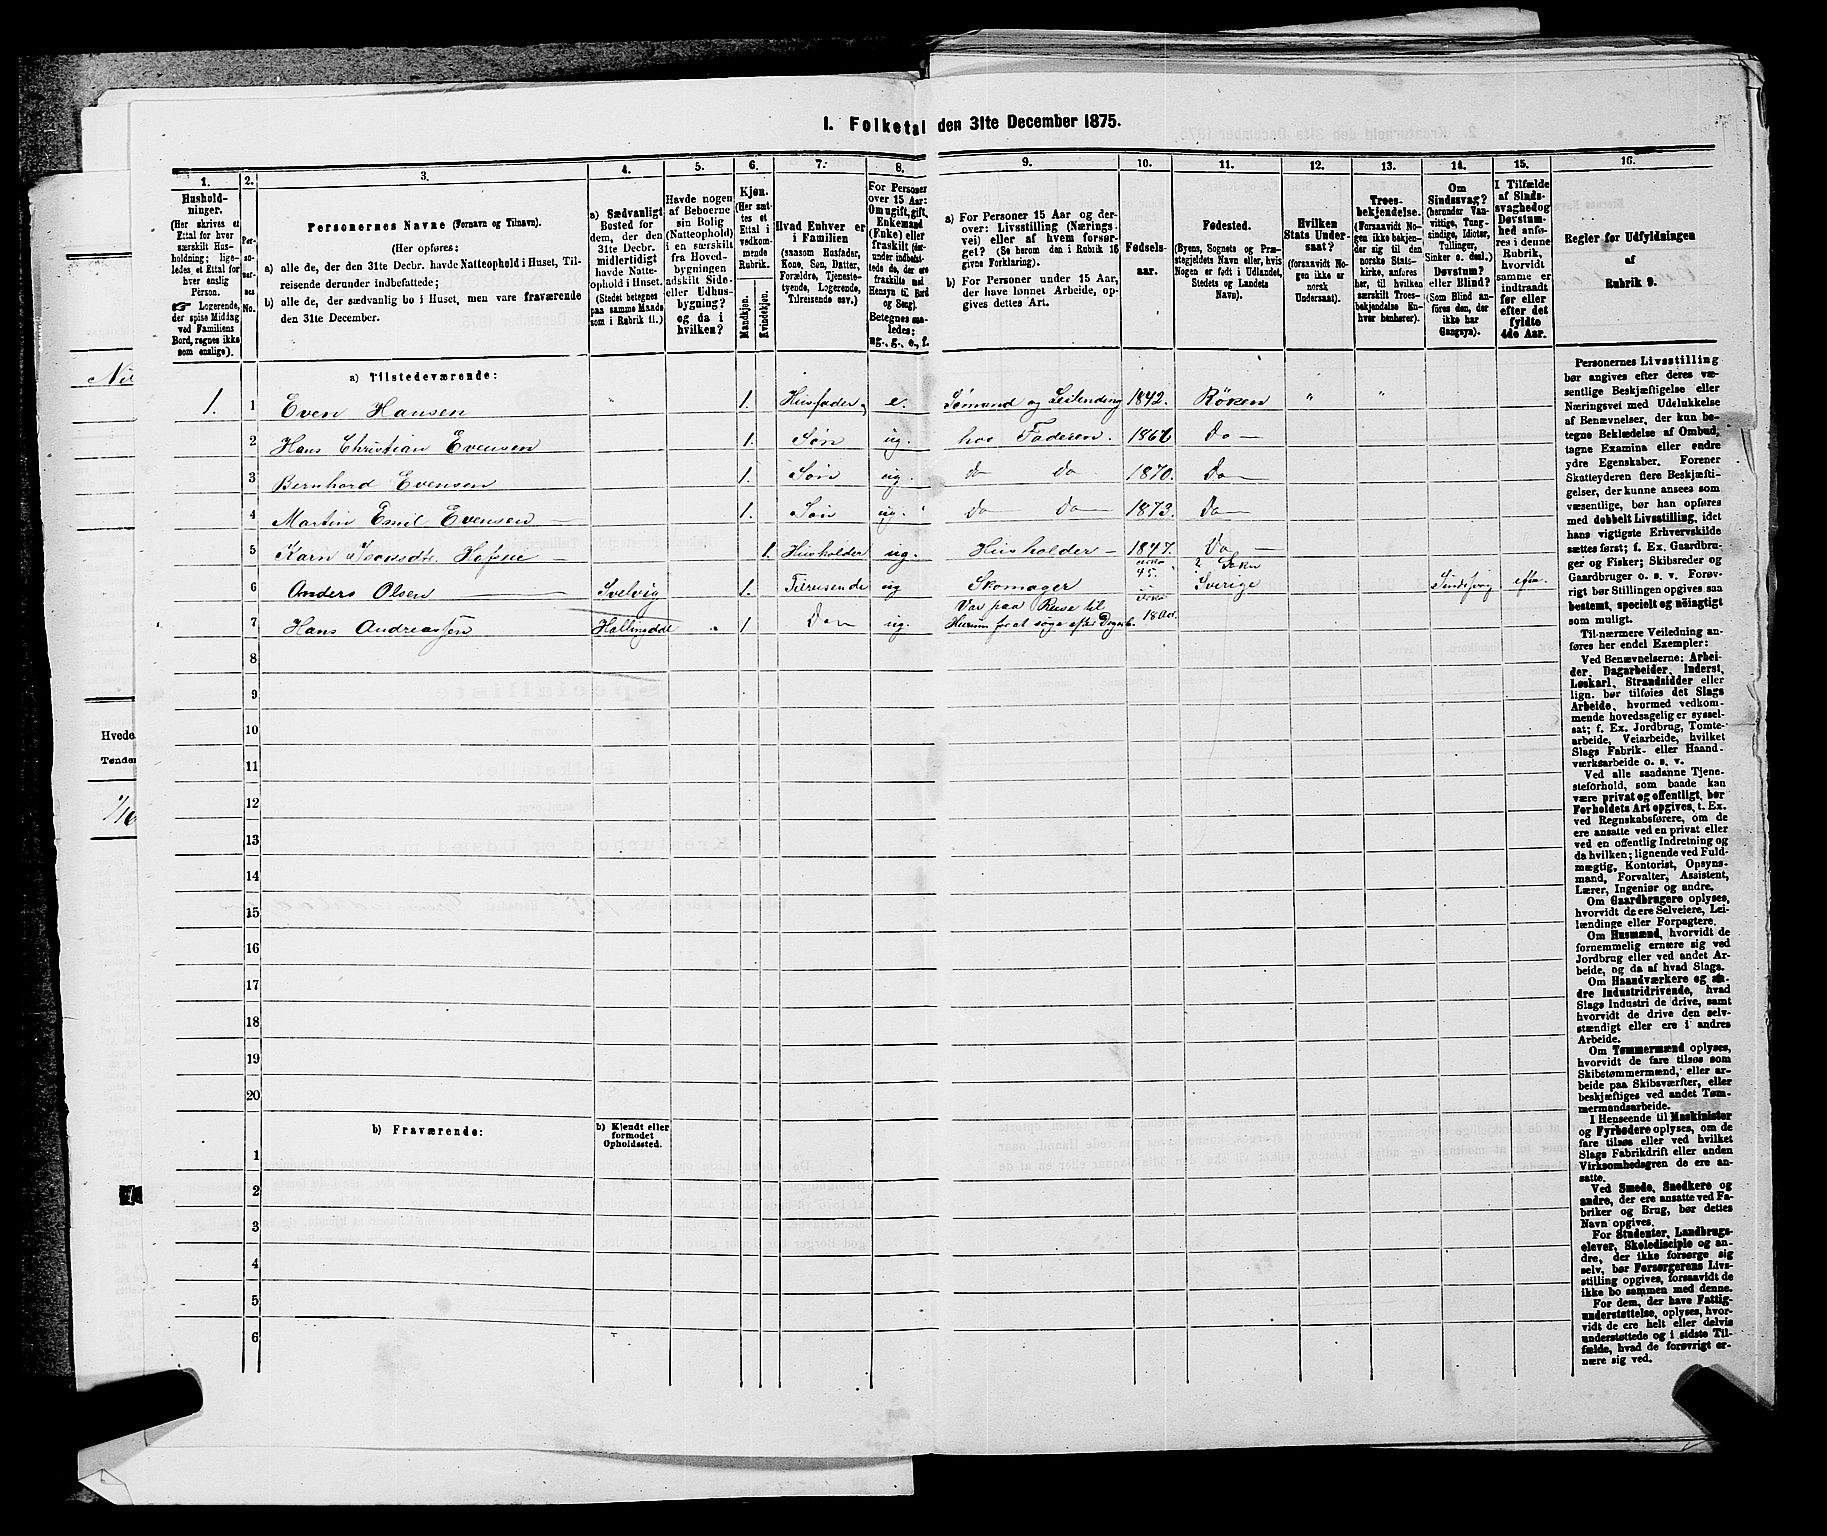 1. Folketal den 31te December 1875.
1. 2. 3. 4. 5. 6. 7. 8. 9. 10. 11. 12. 13. 14. 15. 16.
Hushold-
ninger.
(Her skrives et
Ettal for hver
særskilt Hus-
holdning; lige-
ledes et Ettal for
hver enslig
Person.
☞ Logerende,
der spise Middag
ved Familiens
Bord, regnes ikke
som enslige).
Per-
so-
ner-
nes
No.
Personernes Navne (Fornavn og Tilnavn).
(Her opføres;
a) alle de, der den 31te Decbr. havde Natteophold i Huset, Til-
reisende derunder indbefattede;
b) alle de, der sædvanlig bo i Huset, men vare fraværende
den 31te December.
a) Sædvanligt
Bosted for
dem, der den
31te Decbr.
midlertidigt
havde Natte-
ophold i Huset.
(Stedet betegnes
paa samme Maade
som i Rubrik 11.)
Havde nogen
af Beboerne
sin Bolig
(Natteophold)
i en særskilt
fra Hoved-
bygningen
adskilt Side-
eller Udhus-
bygning?
og da i
hvilken?
Kjøn.
(Her sæt-
tes et
Ettal i
vedkom-
mende
Rubrik.
Mandkjøn.
Kvindekjøn.
Hvad Enhver er
i Familien
(saasom Husfader,
Kone, Søn, Datter,
Forældre, Tjeneste-
tyende, Logerende,
Tilreisende osv.)
For Personer
over 15 Aar:
Om ugift, gift,
Enkemand
(Enke) eller
fraskilt (der-
under indbefat-
tede de, der ere
fraskilte med
Hensyn til Bord
og Seng).
Betegnes saa-
ledes:
ug., g., e., f.
a) For Personer 15 Aar og der-
over: Livsstilling (Nærings-
vei) eller af hvem forsør-
get? (Se herom den i Rubrik 16
givne Forklaring).
b) For Personer under 15 Aar,
der have lønnet Arbeide, op-
gives dettes Art.
Fødsels-
aar.
Fødested.
(Byens, Sognets og Præ-
stegjeldets Navn eller, hvis
Nogen er født i Udlandet,
Stedets og Landets
Navn).
Hvilken
Stats Under-
saat?
(forsaavidt No-
gen ikke er
norsk
Undersaat).
Troes-
bekjendelse.
(Forsaavidt No-
gen ikke bekjen-
der sig til den
norske Stats-
kirke, anføres
her, til hvilken
særskilt Troes-
bekjendelse En-
hver henhører).
Om
Sindssvag?
(herunder Van-
vittige, Tung-
sindige, Idioter,
Tullinger,
Sinker o. desl.)
Døvstum?
eller Blind?
(Som Blind an-
føres den, der
ikke har
Gangsyn).
I Tilfælde
af Sinds-
svaghed og
Døvstum-
hed anfø-
res i denne
Rubrik,
hvorvidt
samme er
indtraadt
før eller
efter det
fyldte
4de Aar.
Regler for Udfyldningen
af
Rubrik 9.
a) Tilstedeværende:
1. 1 Even Hansen 1. Husfader e. Sømand og Leilending 1842. Røken
2 Hans Christian Evensen 1. Søn ug. hos Faderen. Do
3 Bernhard Evensen 1. Søn ug. do do 1870. Do
4 Martin Emil Evensen 1. Søn ug. do do 1873. Do
5 Karn 1. Husholder ug. Husholder 1847. Do
6 Anders Olsen Svelvig 1. Tilreisende ug Skomager 45. Sverige Sindssvag efter.
7 Hans Andreassen 1 Do ug. Var paa Reise til
Hurum for at søge efter
8
9
10
11
12
13
14
15
16
17
18
19
20
b) Fraværende: b) Kjendt eller
formodet
Opholdssted.
1
2
3
4
5
6
Personernes Livsstilling
bør angives efter deres væ-
sentlige Beskjæftigelse eller
Næringsvei med Udelukkelse
af Benævnelser, der kun be-
tegne Beklædelse af Ombud,
tagne Examina eller andre
ydre Egenskaber. Forener
Skatteyderen flere Beskjæfti-
gelser, der kunne ansees som
væsentlige, bør han opføres
med dobbelt Livsstilling, idet
hans vigtigste Erhvervskilde
sættes først; f. Ex. Gaardbru-
ger og Fisker; Skibsreder og
Gaardbruger o. s. v. Forøv-
rigt bør Stillingen opgives saa
bestemt, specielt og nøiagtigt
som muligt.
Til nærmere Veiledning an-
føres her endel Exempler:
Ved Benævnelserne: Arbei-
der, Dagarbeider, Inderst,
Løskarl, Strandsidder eller
lign. bør tilføies det Slags
Arbeide, hvormed vedkom-
mende hovedsagelig er syssel-
sat; f. Ex. Jordbrug, Tomte-
arbeide, Veiarbeide, hvilket
Slags Fabrik- eller Haand-
værksarbeide o. s. v.
Ved alle saadanne Tjene-
steforhold, som baade kan
være privat og offentligt, bør
Forholdets Art opgives, t. Ex.
ved Regnskabsførere, om de
ere ansatte ved en privat eller
ved en offentlig Indretning og
da hvilken; lignende ved Fuld-
mægtig, Kontorist, Opsyns-
mand, Forvalter, Assistent,
Lærer, Ingeniør og andre.
Om Gaardbrugere oplyses,
hvorvidt de ere Selveiere, Lei-
lændinge eller Forpagtere.
Om Husmænd, hvorvidt de
fornemmelig ernære sig ved
Jordbrug eller ved andet Ar-
beide, og da af hvad Slags.
Om Haandværkere og an-
dre Industridrivende, hvad
Slags Industri de drive, samt
hvorvidt de drive den selv-
stændigt eller ere i andres
Arbeide.
Om Tømmermænd oplyses,
hvorvidt de fare tilsøs som
Skibstømmermænd, eller ar-
beide paa Skibsværfter, eller
beskjæftiges ved andet Tøm-
mermandsarbeide.
I Henseende til Maskinister
og Fyrbødere oplyses, om de
fare tilsøs eller ved hvilket
Slags Fabrikdrift eller anden
Virksomhedsgren de ere an-
satte.
Ved Smede, Snedkere og
andre, der ere ansatte ved Fa-
briker og Brug, bør dettes
Navn opgives.
For Studenter, Landbrugs-
elever, Skoledisciple og an-
dre, der ikke forsørge sig
selv, bør Forsørgerens Livs-
stilling opgives, forsaavidt de
ikke bo sammen med denne.
For dem, der have Fattig-
understøttelse, oplyses, hvor-
vidt de ere helt eller delvis
understøttede og i sidste Til-
fælde, hvad de forøvrigt er-
nære sig ved.
Hvede.
Tønder